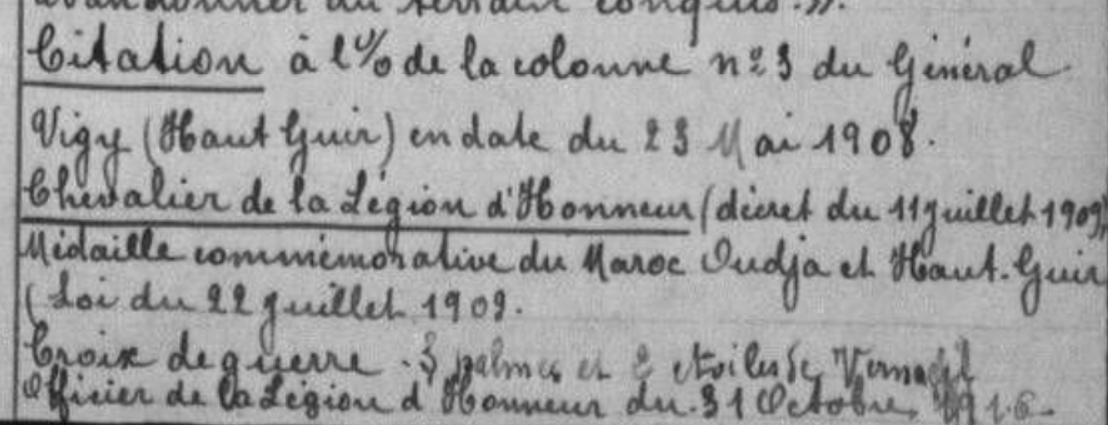 abandonner du terrain conquis.».
Citation à l'% de la colonne n°3 du Général
Vigy (Haut Guir) en date du 23 Mai 1908.
Chevalier de la Légion d'Honneur (décret du 11 juillet 1909)
Médaille commémorative du Maroc Oudja et Haut-Guir
(Loi du 22 juillet 1909.
Croix de guerre. 3 palmes et 2 étoiles de Vermeil
Officier de la Légion d'Honneur du 31 Octobre 1916